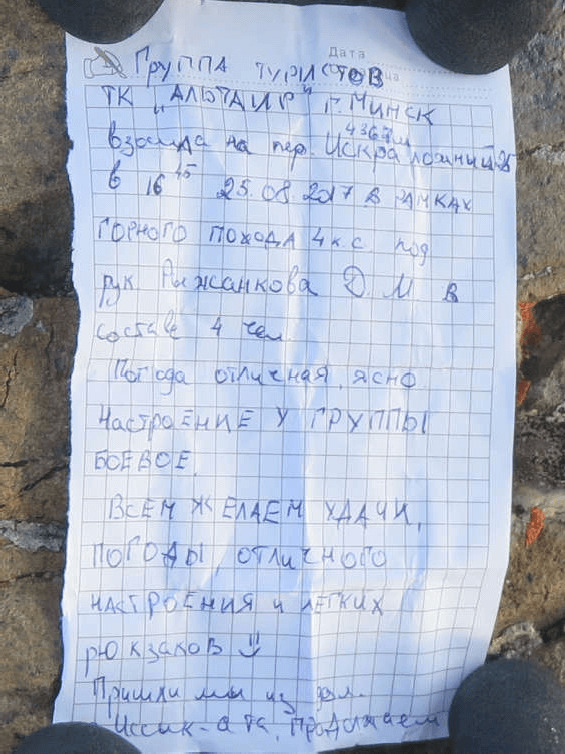 Дата
Группа туристов
ТК „Альтаир" г. Минск
4367м
взошла на пер. Искра ложный 2Б
в 16 45 25.08 2017 в рамках
горного похода 4 к.с. под
рук. Рыжанкова Д. М в
составе 4 чел.
Погода отличная, ясно.
Настроение у группы
боевое.
Всем желаем удачи,
погоды, отличного
настроения и легких
рюкзаков !!
Пришли мы из дол.
Иссик-ата, продолжаем